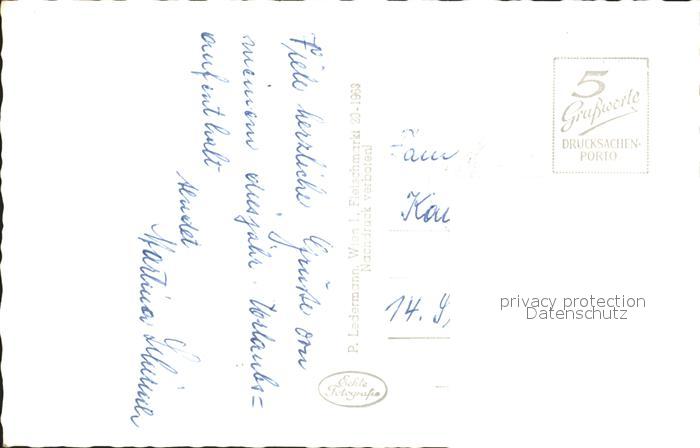 Viele herzliche Grüße von
meinem diesjähr. Urlaubs=
aufenthalt
sendet
Martina
P. Ledermann, Wien I, Fleischmarkt 20-1963
Nachdruck verboten!
Echte
Fotografie
5
Grußworte
DRUCKSACHEN-
PORTO
Fam
Kau
14. 9,
privacy protection
Datenschutz